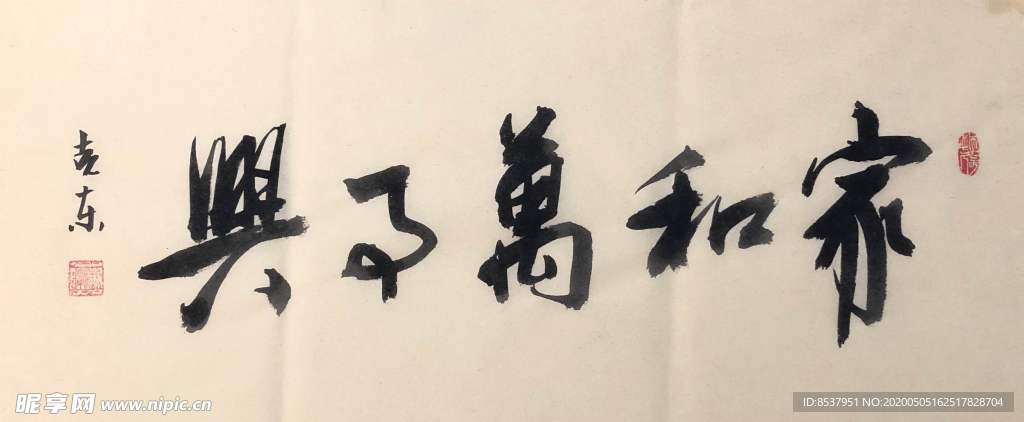 家和萬事興
克东
昵享网 www.nipic.cn
ID:8537951 NO:20200505162517828704